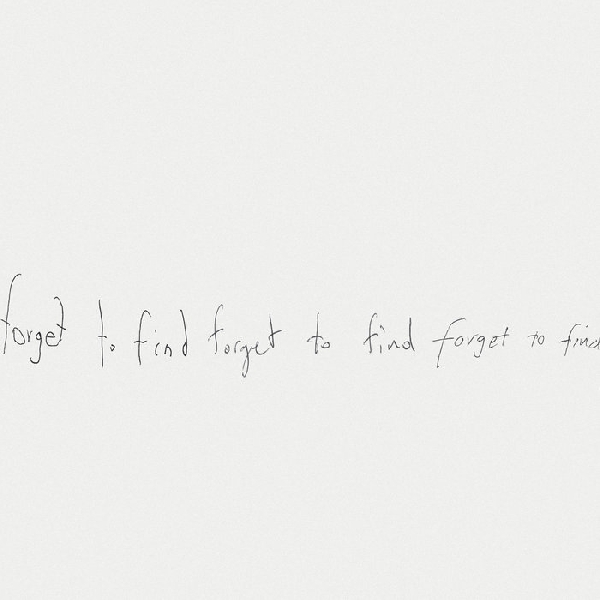 forget to find forget to find forget to find